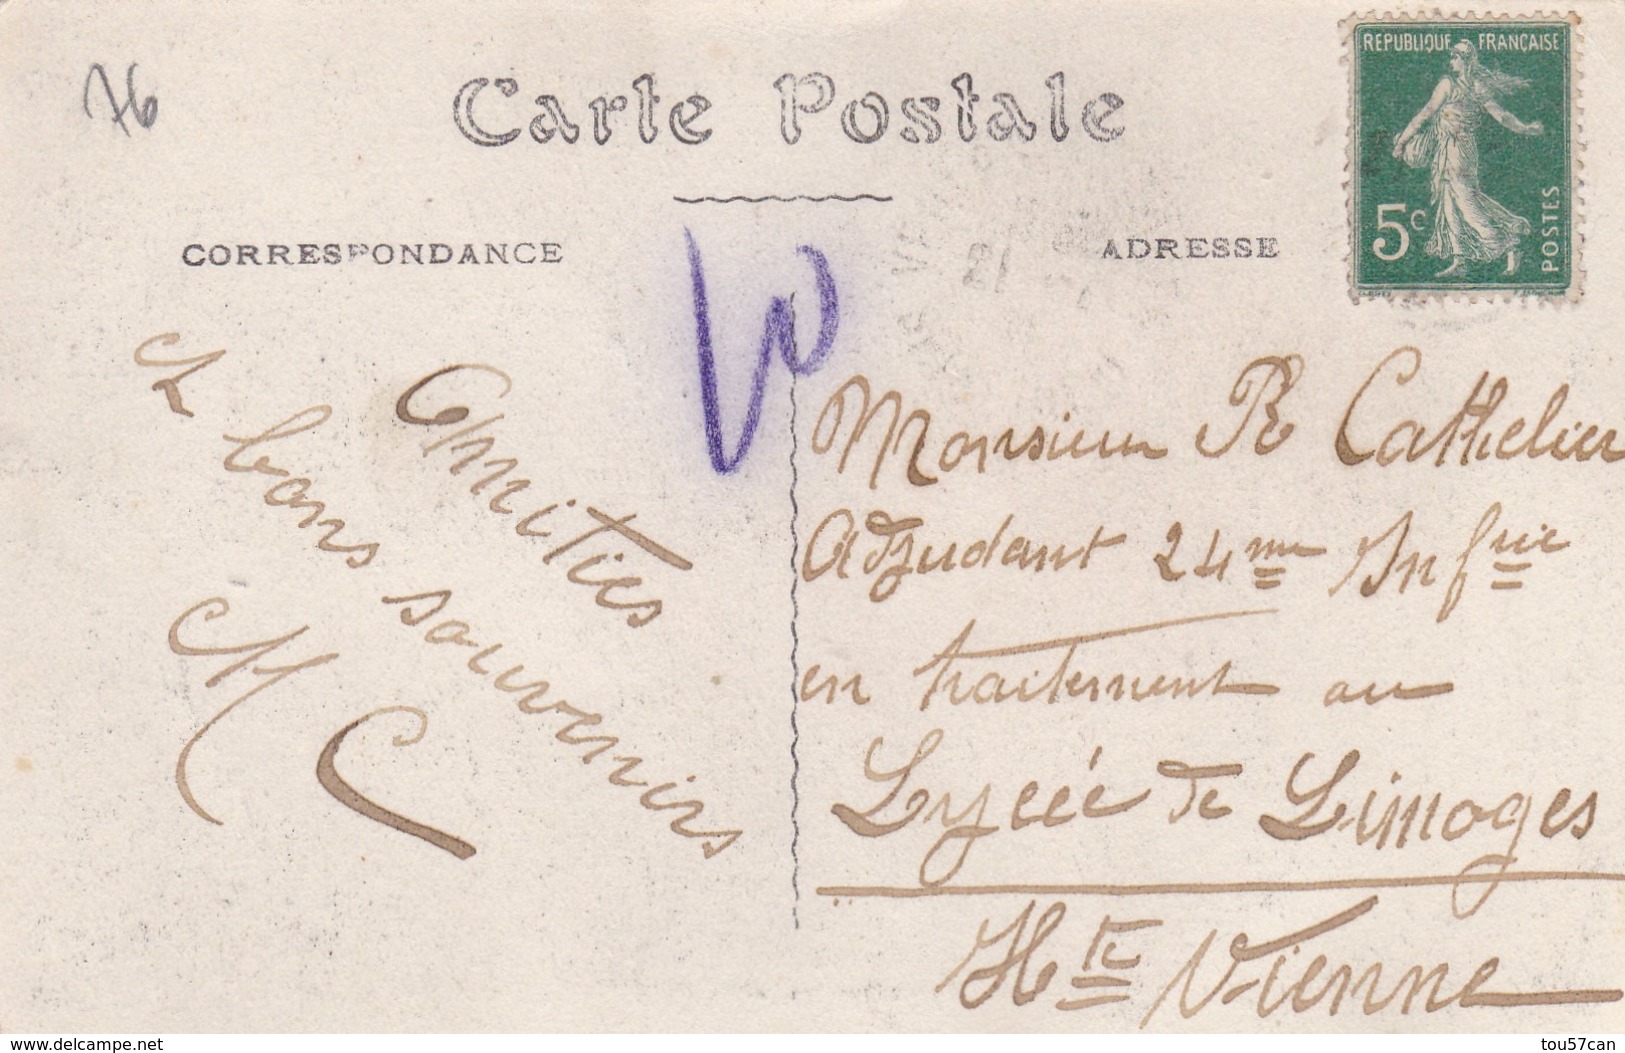 76
Carte Postale
REPUBLIQUE FRANÇAISE
5c
POSTES
CORRESPONDANCE
ADRESSE
Amitiés
et bons souvenirs
MC
Monsieur R Cathelier
Adjudant 24me Infrie
en traitement au
Lycée de Limoges
Hte Vienne
http://www.delcampe.net
tou57can